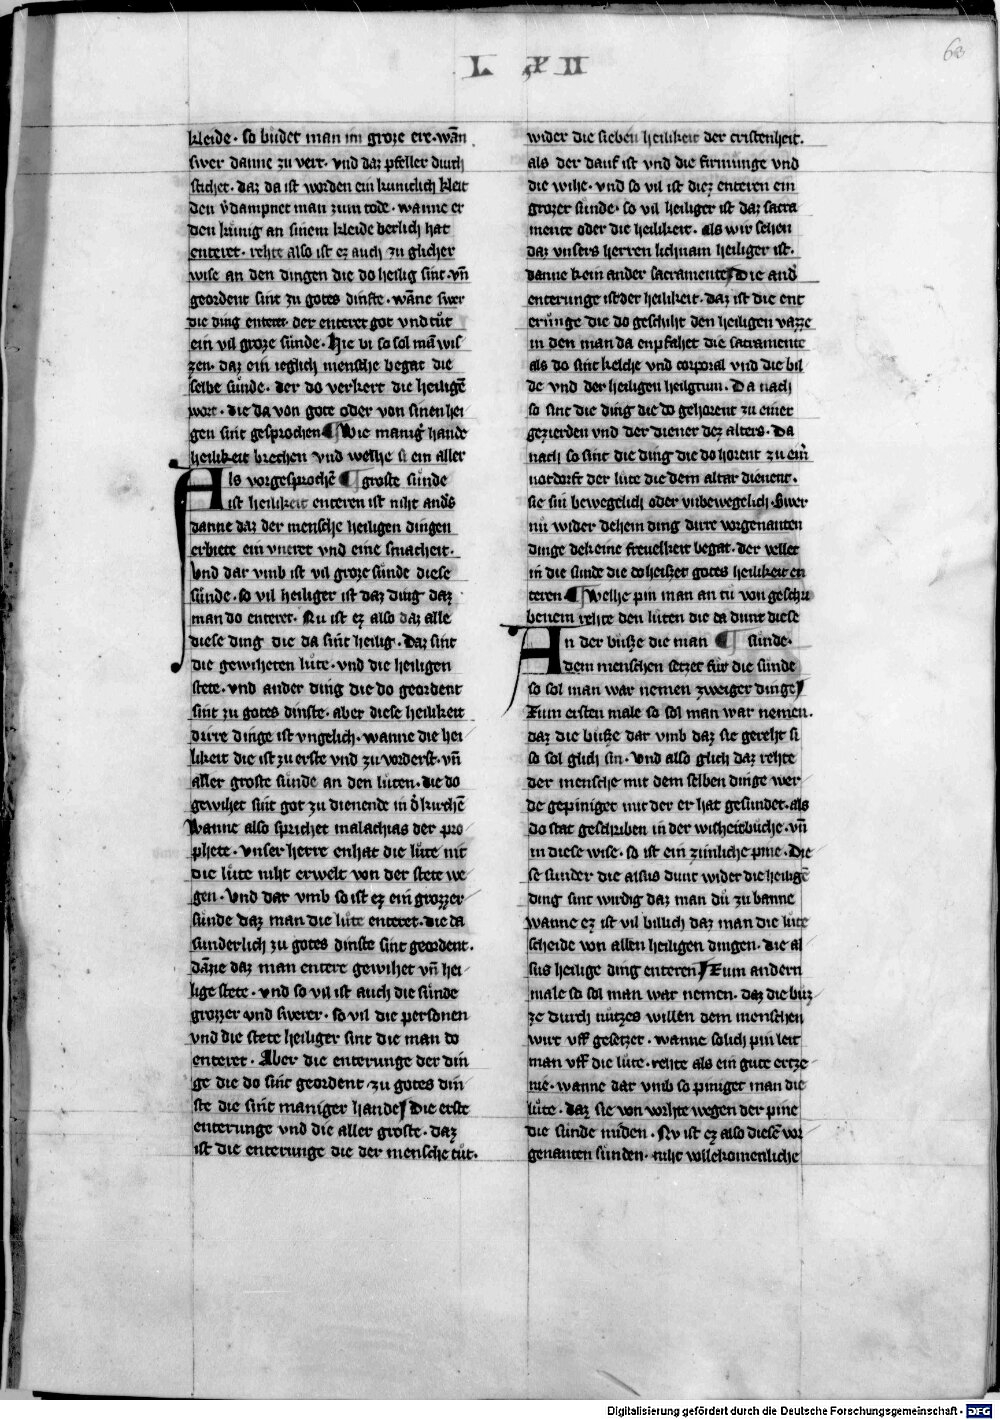 L XII
63
kleide · so būdet man im groze ere · wān
swer danne zu vert · vnd daz pfeller durch
stichet · daz da ist worden ein kuniclich kleit
den v̾dampnet man zum tode · wanne er
den kuͤnig an sinem kleide berlich hat
enteret · rehte also ist ez auch zu glicher
wise an den dingen die do heilig sint · vn̄
geordent sint zu gotes dinste · wāne swer
die ding enteret · der enteret got vnd tuͤt
ein vil groze suͤnde · Hie bi so sol mā wis
zen · daz ein ieglich mensche begat die
selbe suͤnde · der do verkert die heiligē
wort · die da von gote oder von sinen hei
gen sint gesprochen ¶ Wie manig̾ hande
heilikeit brechen vnd welhe si ein aller
Als vorgesprochē ¶ groste suͤnde
ist heilikeit enteren ist niht and̾s
danne daz der mensche heiligen dingen
erbiete ein vneret vnd eine smacheit ·
Vnd dar vmb ist vil groze suͤnde diese
suͤnde · so vil heiliger ist daz ding daz
man do enteret · Nu ist ez also daz alle
diese ding die da sint heilig · Daz sint
die gewiheten luͤte · vnd die heiligen
stete · vnd ander ding die do geordent
sint zu gotes dinste · aber diese heilikeit
dirre dinge ist vngelich · wanne die hei
likeit die ist zu erste vnd zu vorderst · vn̄
aller groste suͤnde an den luͤten · die do
gewihet sint got zu dienende in d̾ kirchē
Wanne also sprichet malachias der pro
phete · vnser herre enhat die luͤte nit
die luͤte niht erwelt von der stete we
gen · Vnd dar vmb so ist ez ein grozzer
suͤnde daz man die luͤte enteret · die da
sunderlich zu gotes dinste sint geordent ·
dāne daz man entere gewihet vn̄ hei
lige stete · vnd so vil ist auch die suͤnde
grozzer vnd swerer · so vil die personen
vnd die stete heiliger sint die man do
enteret · Aber die enterunge der din
ge die do sint geordent zu gotes din
ste die sint maniger hande / Die erste
enterunge vnd die aller groste · daz
ist die enterunge die der mensche tuͤt ·
wider die sieben heilikeit der cristenheit ·
als der dauf ist vnd die firmunge vnd
die wihe · vnd so vil ist diez enteren ein
grozer suͤnde · so vil heiliger ist daz sacra
mente oder die heilikeit · als wir sehen
daz vnsers herren lichnam heiliger ist ·
danne kein ander sacramente / Die and̾
enterunge ist der heilikeit · daz ist die ent
erunge die do geschiht den heiligen vazze
in den man da enpfahet die sacramente
als do sint kelche vnd corporal vnd die bil
de vnd der heiligen heilgtum · Da nach
so sint die ding die do gehorent zu einer
gezierden vnd der diener dez alters · Da
nach so sint die ding die do horent zu ein̾
notdorft der lute die dem altar dienent ·
sie sin bewegelich oder vnbewegelich · Swer
nuͤ wider dehein ding dirre vorgenanten
dinge dekeine freuelkeit begat · der vellet
in die sunde die do heiszet gotes heilikeit en
teren ¶ Welhe pin man an tuͤ von geschri
benem rehte den luͤten die da dunt diese
An der buͤsze die man ¶ suͤnde ·
dem menschen setzet fur die suͤnde
so sol man war nemen zweiger dinge /
Zum ersten male so sol man war nemen ·
daz die buͤsze dar vmb daz sie gereht si
so sol glich sin · Vnd also glich daz rehte
der mensche mit dem selben dinge wer
de gepiniget mit der er hat gesundet · als
do stat geschriben in der wisheitbuͤche · vn̄
in diese wise · so ist ein zimliche pine · Die
se sunder die alsus dunt wider die heiligē
ding sint wirdig daz man duͤ zu banne
wanne ez ist vil billich daz man die luͤte
scheide von allen heiligen dingen · die al
sus heilige ding enteren / Zum andern
male so sol man war nemen · daz die buͤz
ze durch nuͤtzes willen dem menschen
wirt vff gesetzet · wanne solich pin leit
man vff die lute · rehte als ein gute ertze
nie · wanne dar vmb so piniget man die
luͤte · daz sie von vorhte wegen der pine
die suͤnde miden · Nv ist ez also diesē vor
genanten suͤnden · niht vollekomenliche
Digitalisierung gefördert durch die Deutsche Forschungsgemeinschaft - DFG